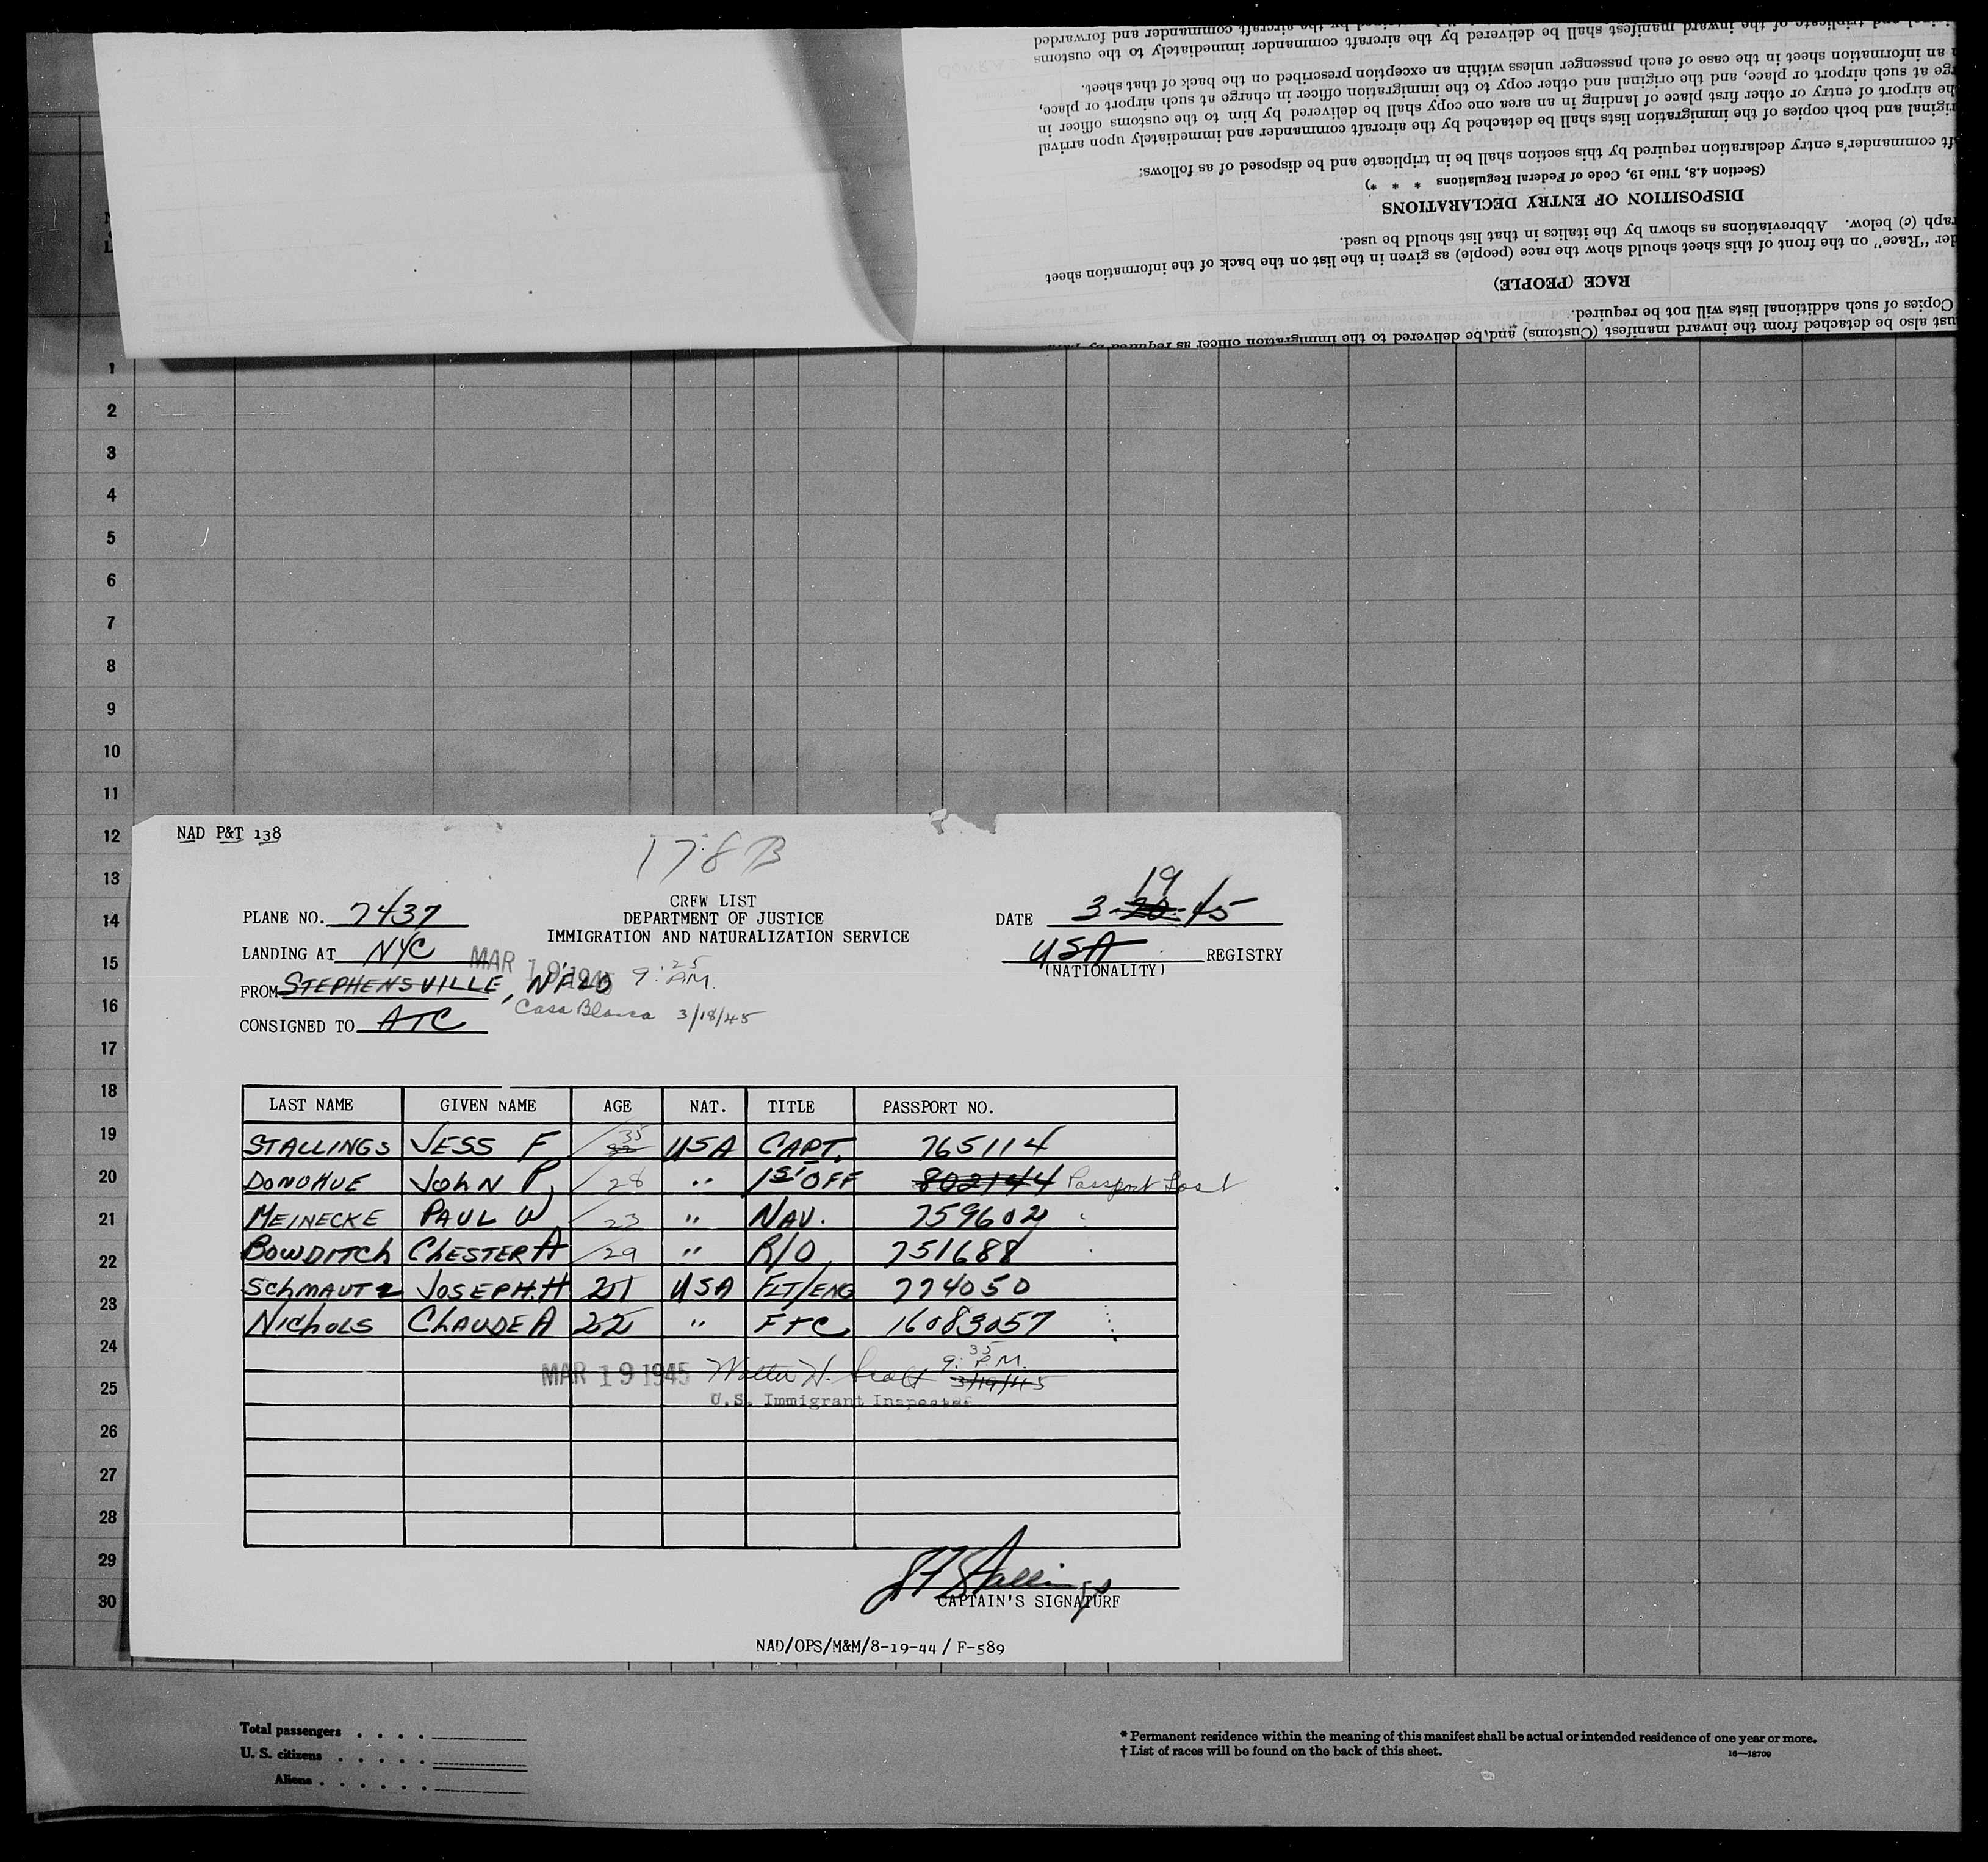 original and triplicate of the inward manifest shall be delivered by the aircraft commander immediately to the customs
an information sheet in the case of each passenger unless within an exception prescribed on the back of that sheet.
rge at such airport or place, and the original and other copy to the immigration officer in charge at such airport or place,
he airport of entry or other first place of landing in an area one copy shall be delivered by him to the customs officer in
riginal and both copies of the immigration lists shall be detached by the aircraft commander and immediately upon arrival
ft commander's entry declaration required by this section shall be in triplicate and be disposed of as follows:
(Section 4.8, Title 19, Code of Federal Regulations * * *)
DISPOSITION OF ENTRY DECLARATIONS
raph (c) below. Abbreviations as shown by the italics in that list should be used.
der "Race" on the front of this sheet should show the race (people) as given in the list on the back of the information sheet
RACE (PEOPLE)
Copies of such additional lists will not be required.
ust also be detached from the inward manifest (Customs) and be delivered to the immigration officer as required by
1
2
3
4
5
6
7
8
9
10
11
12
13
14
15
16
17
18
19
20
21
22
23
24
25
26
27
28
29
30
NAD P&T 138
178B
CREW LIST
DEPARTMENT OF JUSTICE
IMMIGRATION AND NATURALIZATION SERVICE
PLANE NO. 7437
DATE 3-20-45 19
LANDING AT NYC
MAR 19 1945 9:25 P.M.
USA REGISTRY
(NATIONALITY)
FROM STEPHENSVILLE, NFLD
CasaBlanca 3/18/45
CONSIGNED TO ATC
LAST NAME GIVEN NAME AGE NAT. TITLE PASSPORT NO.
STALLINGS JESS F 35 USA CAPT. 765114
DONOHUE JOHN P, 28 " 1ST OFF 802144 Passport Lost
MEINECKE PAUL W 23 " NAV. 759602
BOWDITCH CHESTER A 29 " R/O 751688
SCHMAUTZ JOSEPH.H 21 USA FLT/ENG 774050
NICHOLS CLAUDE A 22 " FTC 16083057
MAR 19 1945 Walter H. 9:35 P.M.
3/19/45
U.S. Immigrant Inspector
JF Stallings
CAPTAIN'S SIGNATURE
NAD/OPS/M&M/8-19-44/F-589
Total passengers . . . .
U. S. citizens . . . . .
Aliens . . . . . .
* Permanent residence within the meaning of this manifest shall be actual or intended residence of one year or more.
† List of races will be found on the back of this sheet.
16—18709